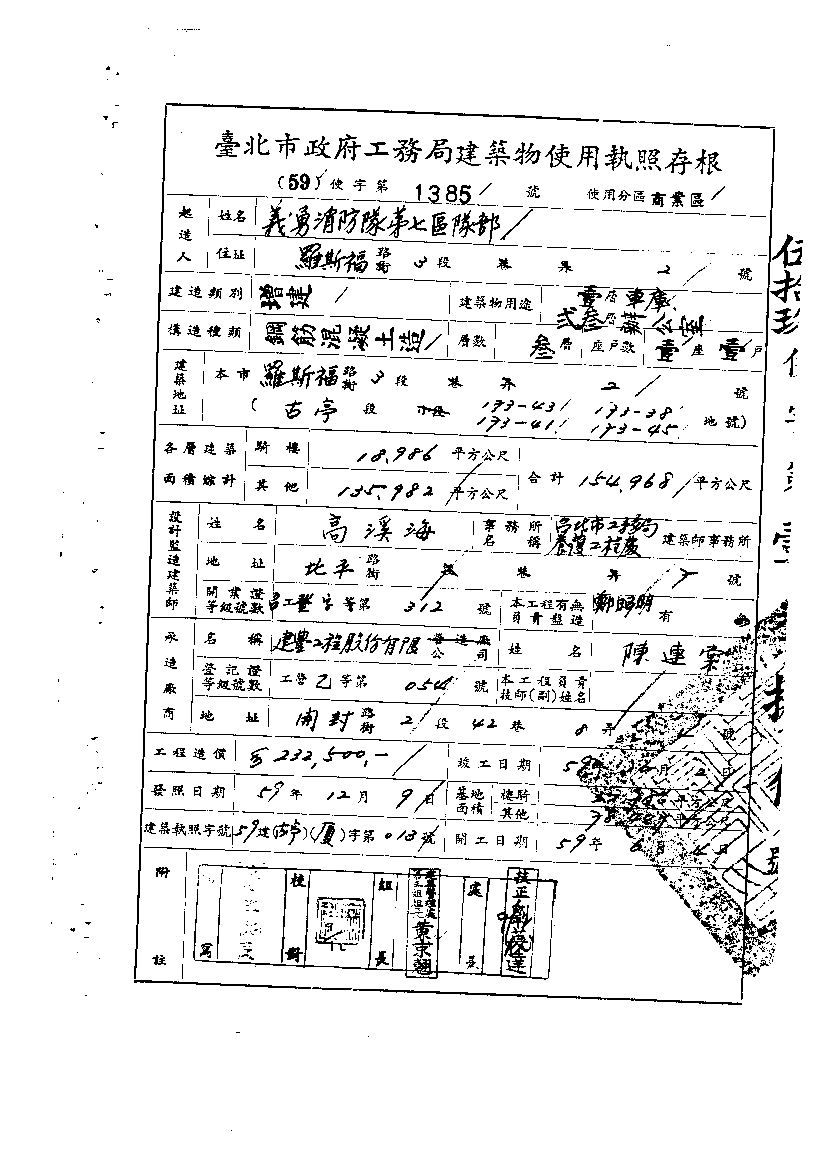 臺北市政府工務局建築物使用執照存根
(59)使字第 1385 號 使用分區 商業區
起造人 姓名 義勇消防隊第七區隊部
住址 羅斯福 路街 3 段 巷 弄 2 號
建造類別 增建 建築物用途 壹層車庫 弍叁層辦公室
構造種類 鋼筋混凝土造 層數 叁層 座戶數 壹座壹戶
建築地址 本市 羅斯福 路街 3 段 巷 弄 2 號
(古亭 段 小段 173-43 173-38 173-41 173-45 地號)
各層建築面積總計 騎樓 18.986 平方公尺 合計 154.968 平方公尺
其他 135.982 平方公尺
設計監造建築師 姓名 高溪海 事務所名稱 台北市工務局養護工程處 建築師事務所
地址 北平 路街 段 巷 弄 7 號
開業證等級號數 台工登字等第 312 號 本工程有無員責監造 鄭昭明 有
承造廠商 名稱 建豐工程股份有限 營造廠公司 姓名 陳連棠
登記證等級號數 工營乙等第 054 號 本工程員責技師(副)姓名
地址 開封 路街 2 段 42 巷 8 弄 號
工程造價 232,500,- 竣工日期 59 月 2 日
發照日期 59年 12月 9日 基地面積 樓騎 平方公尺
其他 38 平方公尺
建築執照字號 59建(古亭)(厦)字第013號 開工日期 59年 6月 日
附註 寫 校對 組長 黃京翹 處長
伍拾玖使字第壹
號